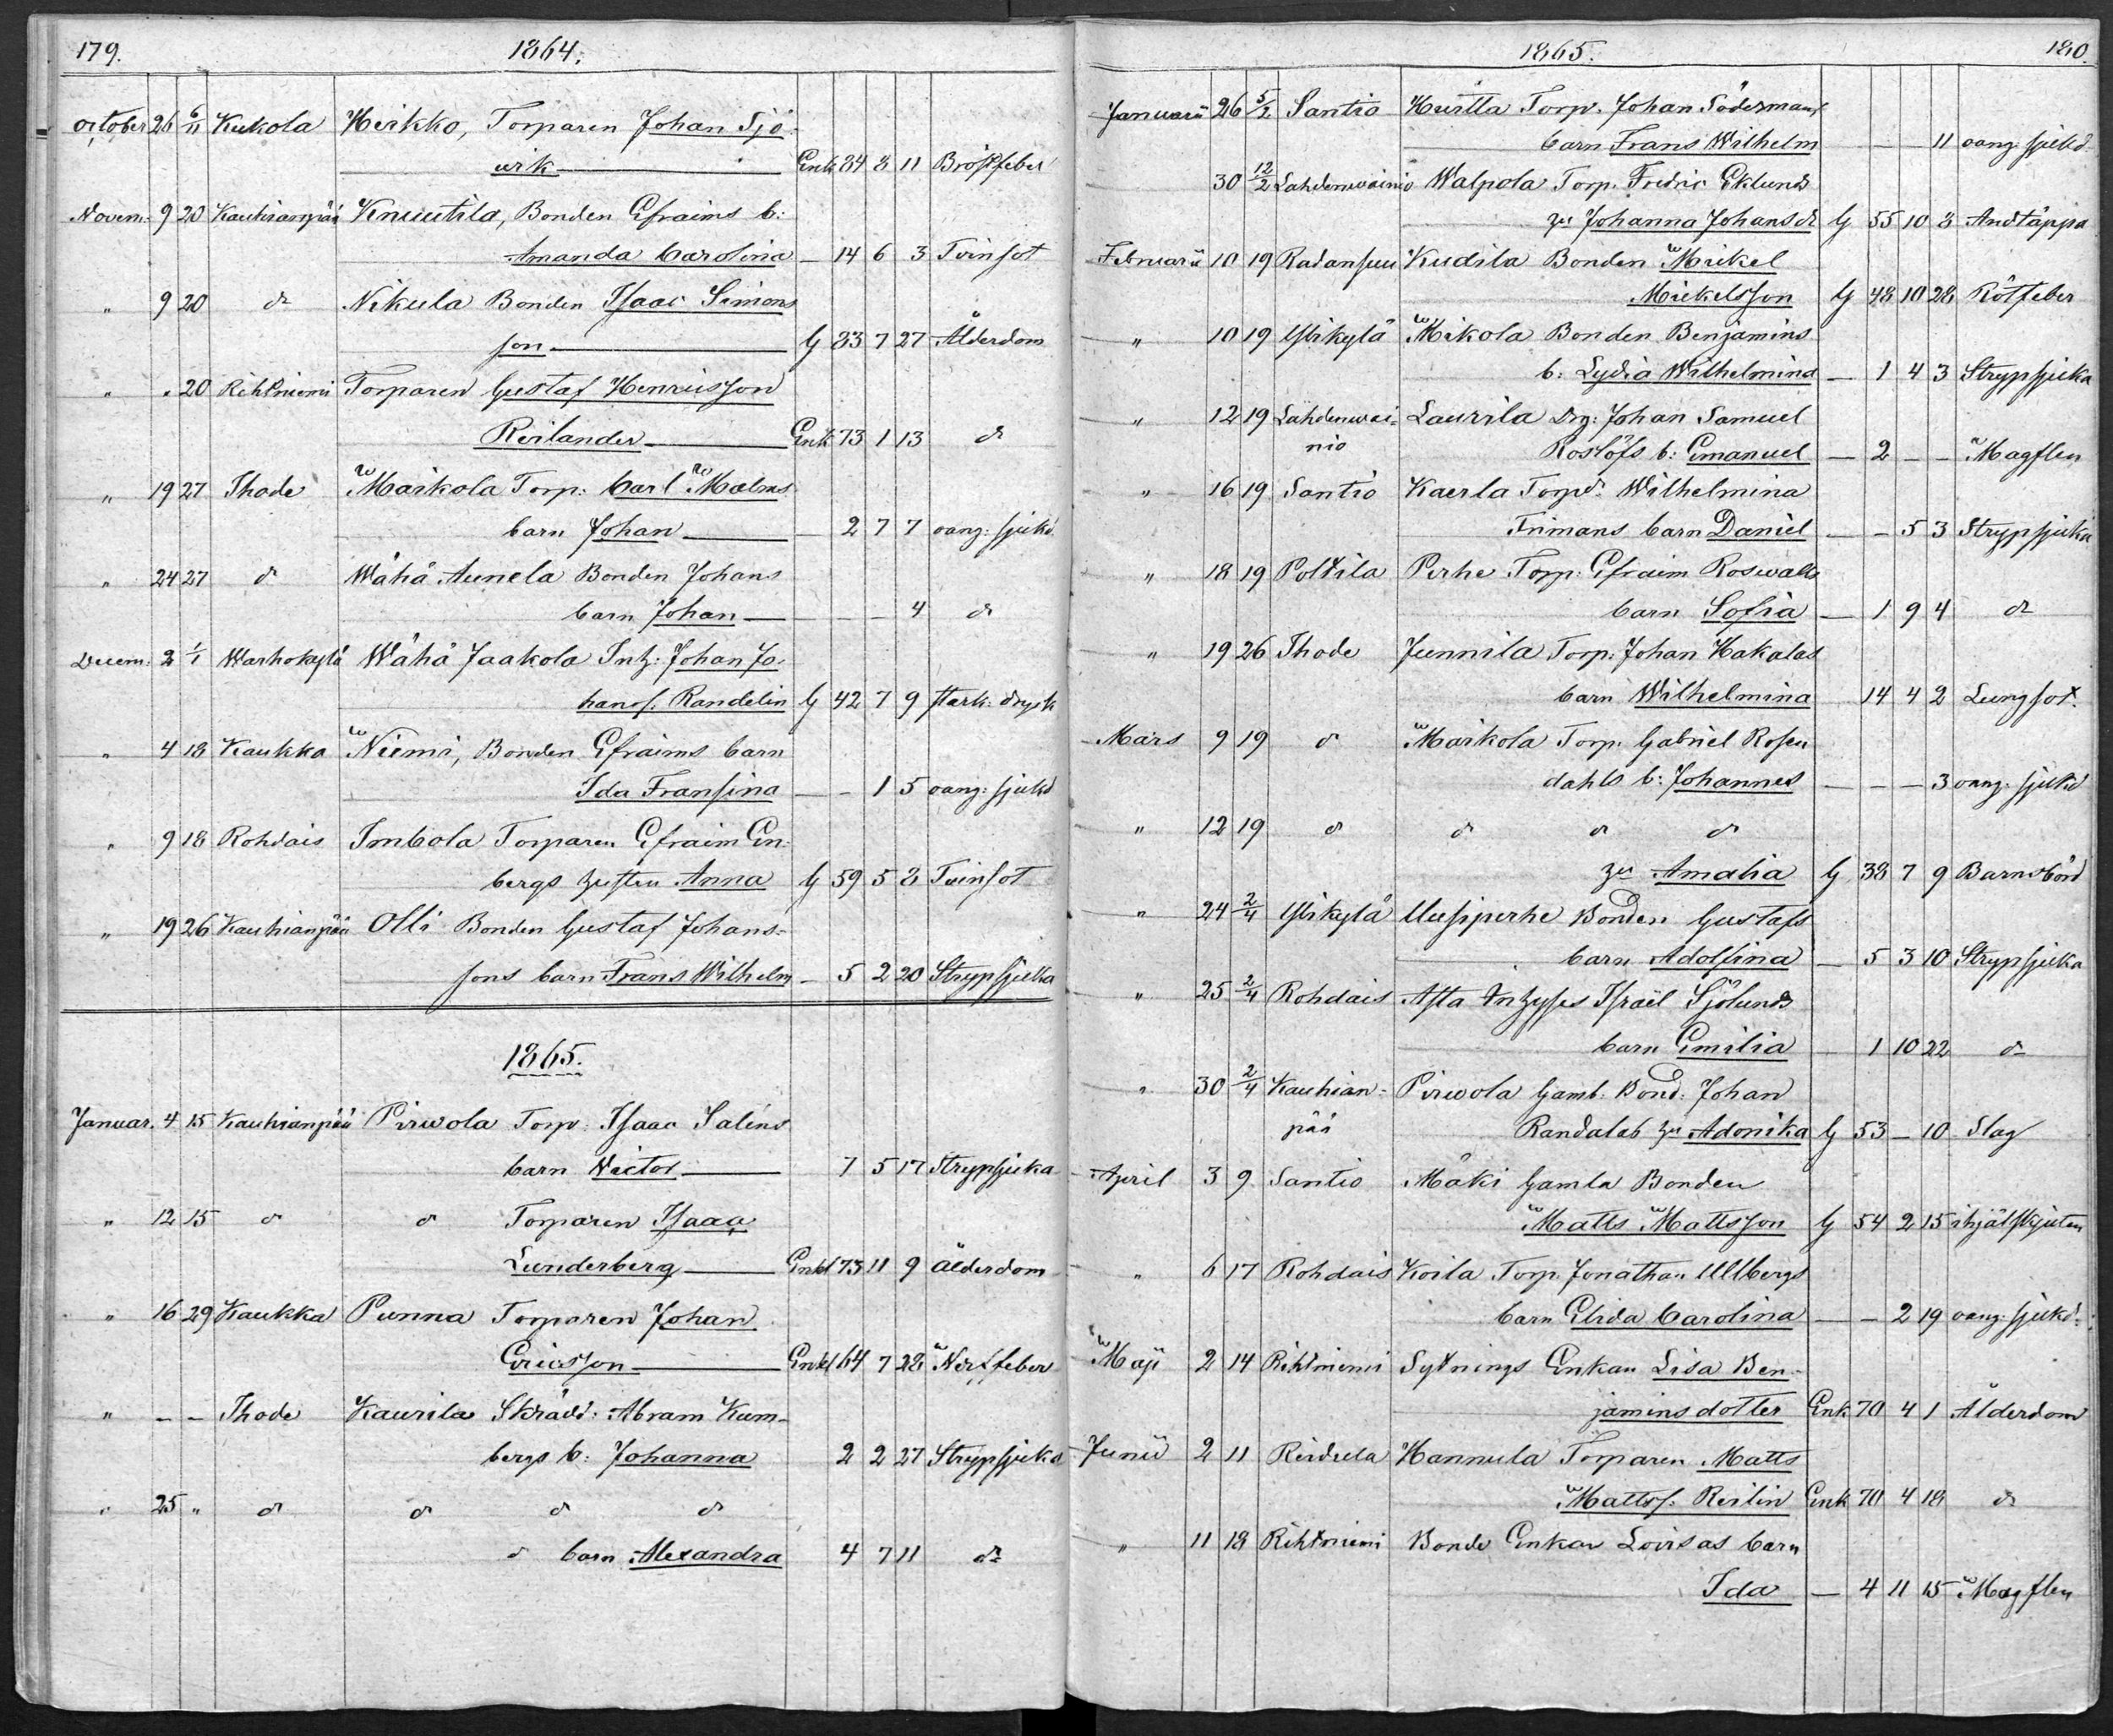 179.
1864.
October 26 6/11 Kukola Heikko, Torparen Johan Sjö-
wik Enk 84 8 11 Bröstfeber
Novem. 9 20 Kauhianpää Knuutila, Bonden Efraims b:
Amanda Carolina — 14 6 3 Tvinsot
" 9 20 d:o Nikula Bonden Isaac Simons
son G 83 7 27 Ålderdom
" " 20 Rihtniemi Torparen Gustaf Henricsson
Reilander Enk 73 1 13 d:o
" 19 27 Ihode Maikola Torp: Carl Malms
barn Johan — 2 7 7 oang: sjukd.
" 24 27 d:o Wähä Aunela Bonden Johans
barn Johan — — — 4 d:o
Decem. 2 1/1 Warhokylä Wähä Jaakola Inh: Johan Jo-
hanss. Randelin G 42 7 9 stark: dryck
" 4 18 Kaukka Niemi, Bonden Efraims barn
Ida Fransina — — 1 5 oang: sjukd
" 9 18 Rohdais Imbola Torparen Efraim En-
bergs hustru Anna G 59 5 8 Tvinsot
" 19 26 Kauhianpää Olli Bonden Gustaf Johans-
sons barn Frans Wilhelm — 5 2 20 Strypsjuka
1865.
Januar. 4 15 Kauhianpää Pirwola Torp: Isaac Salins
barn Victor 7 5 17 Strypsjuka
" 12 15 d:o d:o Torparen Isaac
Lunderberg Enkl 73 11 9 ålderdom
" 16 29 Kaukka Punna Torparen Johan
Ericsson Enkl 64 7 28 Nerffeber
" — — Ihode Kaurila Skrädd: Abram Kum-
bergs b: Johanna 2 2 27 Strypsjuka
" 25 " d:o d:o d:o d:o
d:o barn Alexandra 4 7 11 d:o
1865.
180.
Januarii 26 5/2 Santio Hurtta Torp. Johan Södermans
barn Frans Wilhelm — — 11 oang: sjukd.
30 12/2 Lahdenwainio Walpola Torp. Fredric Eklunds
hu Johanna Johansdr G 55 10 8 Andtäppa
Februarii 10 19 Radansuu Kudila Bonden Mickel
Mickelsson G 48 10 28 Rötfeber
" 10 19 Ylikylä Mikola Bonden Benjamins
b: Lydia Wilhelmina — 1 4 3 Strypsjuka
" 12 19 Lahdenwai- Laurila Drg: Johan Samuel
nio Roslöfs b: Emanuel — 2 — — Magflen
" 16 19 Santio Kaerla Torpd: Wilhelmina
Frimans barn Daniel — — 5 3 Strypsjuka
" 18 19 Polttila Perhe Torp: Efraim Roswalls
barn Sofia — 1 9 4 d:o
" 19 26 Ihode Junnila Torp. Johan Hakalas
barn Wilhelmina 14 4 2 Lungsot.
Mars 9 19 d:o Maikola Torp. Gabriel Rosen
dahls b: Johannes — — — 3 oang: sjukd
" 12 19 d:o d:o d:o d:o
hu Amalia G 38 7 9 Barnsbörd
" 24 2/4 Ylikylä Uusiperhe Bonden Gustafs
barn Adolfina — 5 3 10 Strypsjuka
" 25 2/4 Rohdais Asta Inhyses Israël Sjölunds
barn Emilia — 1 10 22 d:o
" 30 2/4 Kauhian- Pirwola Gamb. Bond: Johan
pää Randalas hu Adonika G 53 — 10 Slag
April 3 9 Santio Mäki Gamla Bonden
Matts Mattsson G 54 2 15 ihjälskjuten
" 6 17 Rohdais Koila Torp. Jonathan Ullbergs
barn Elida Carolina — — 2 19 oang: sjukd:
Maji 2 14 Rihtniemi Sytnings Enkan Lisa Ben-
jamins dotter Enk 70 4 1 Ålderdom
Junii 2 11 Reidula Hannula Torparen Matts
Mattss. Reilin Enk 70 4 18 d:o
" 11 18 Rihtniemi Bonde Enkan Lovisas barn
Ida — 4 11 15 Magflen